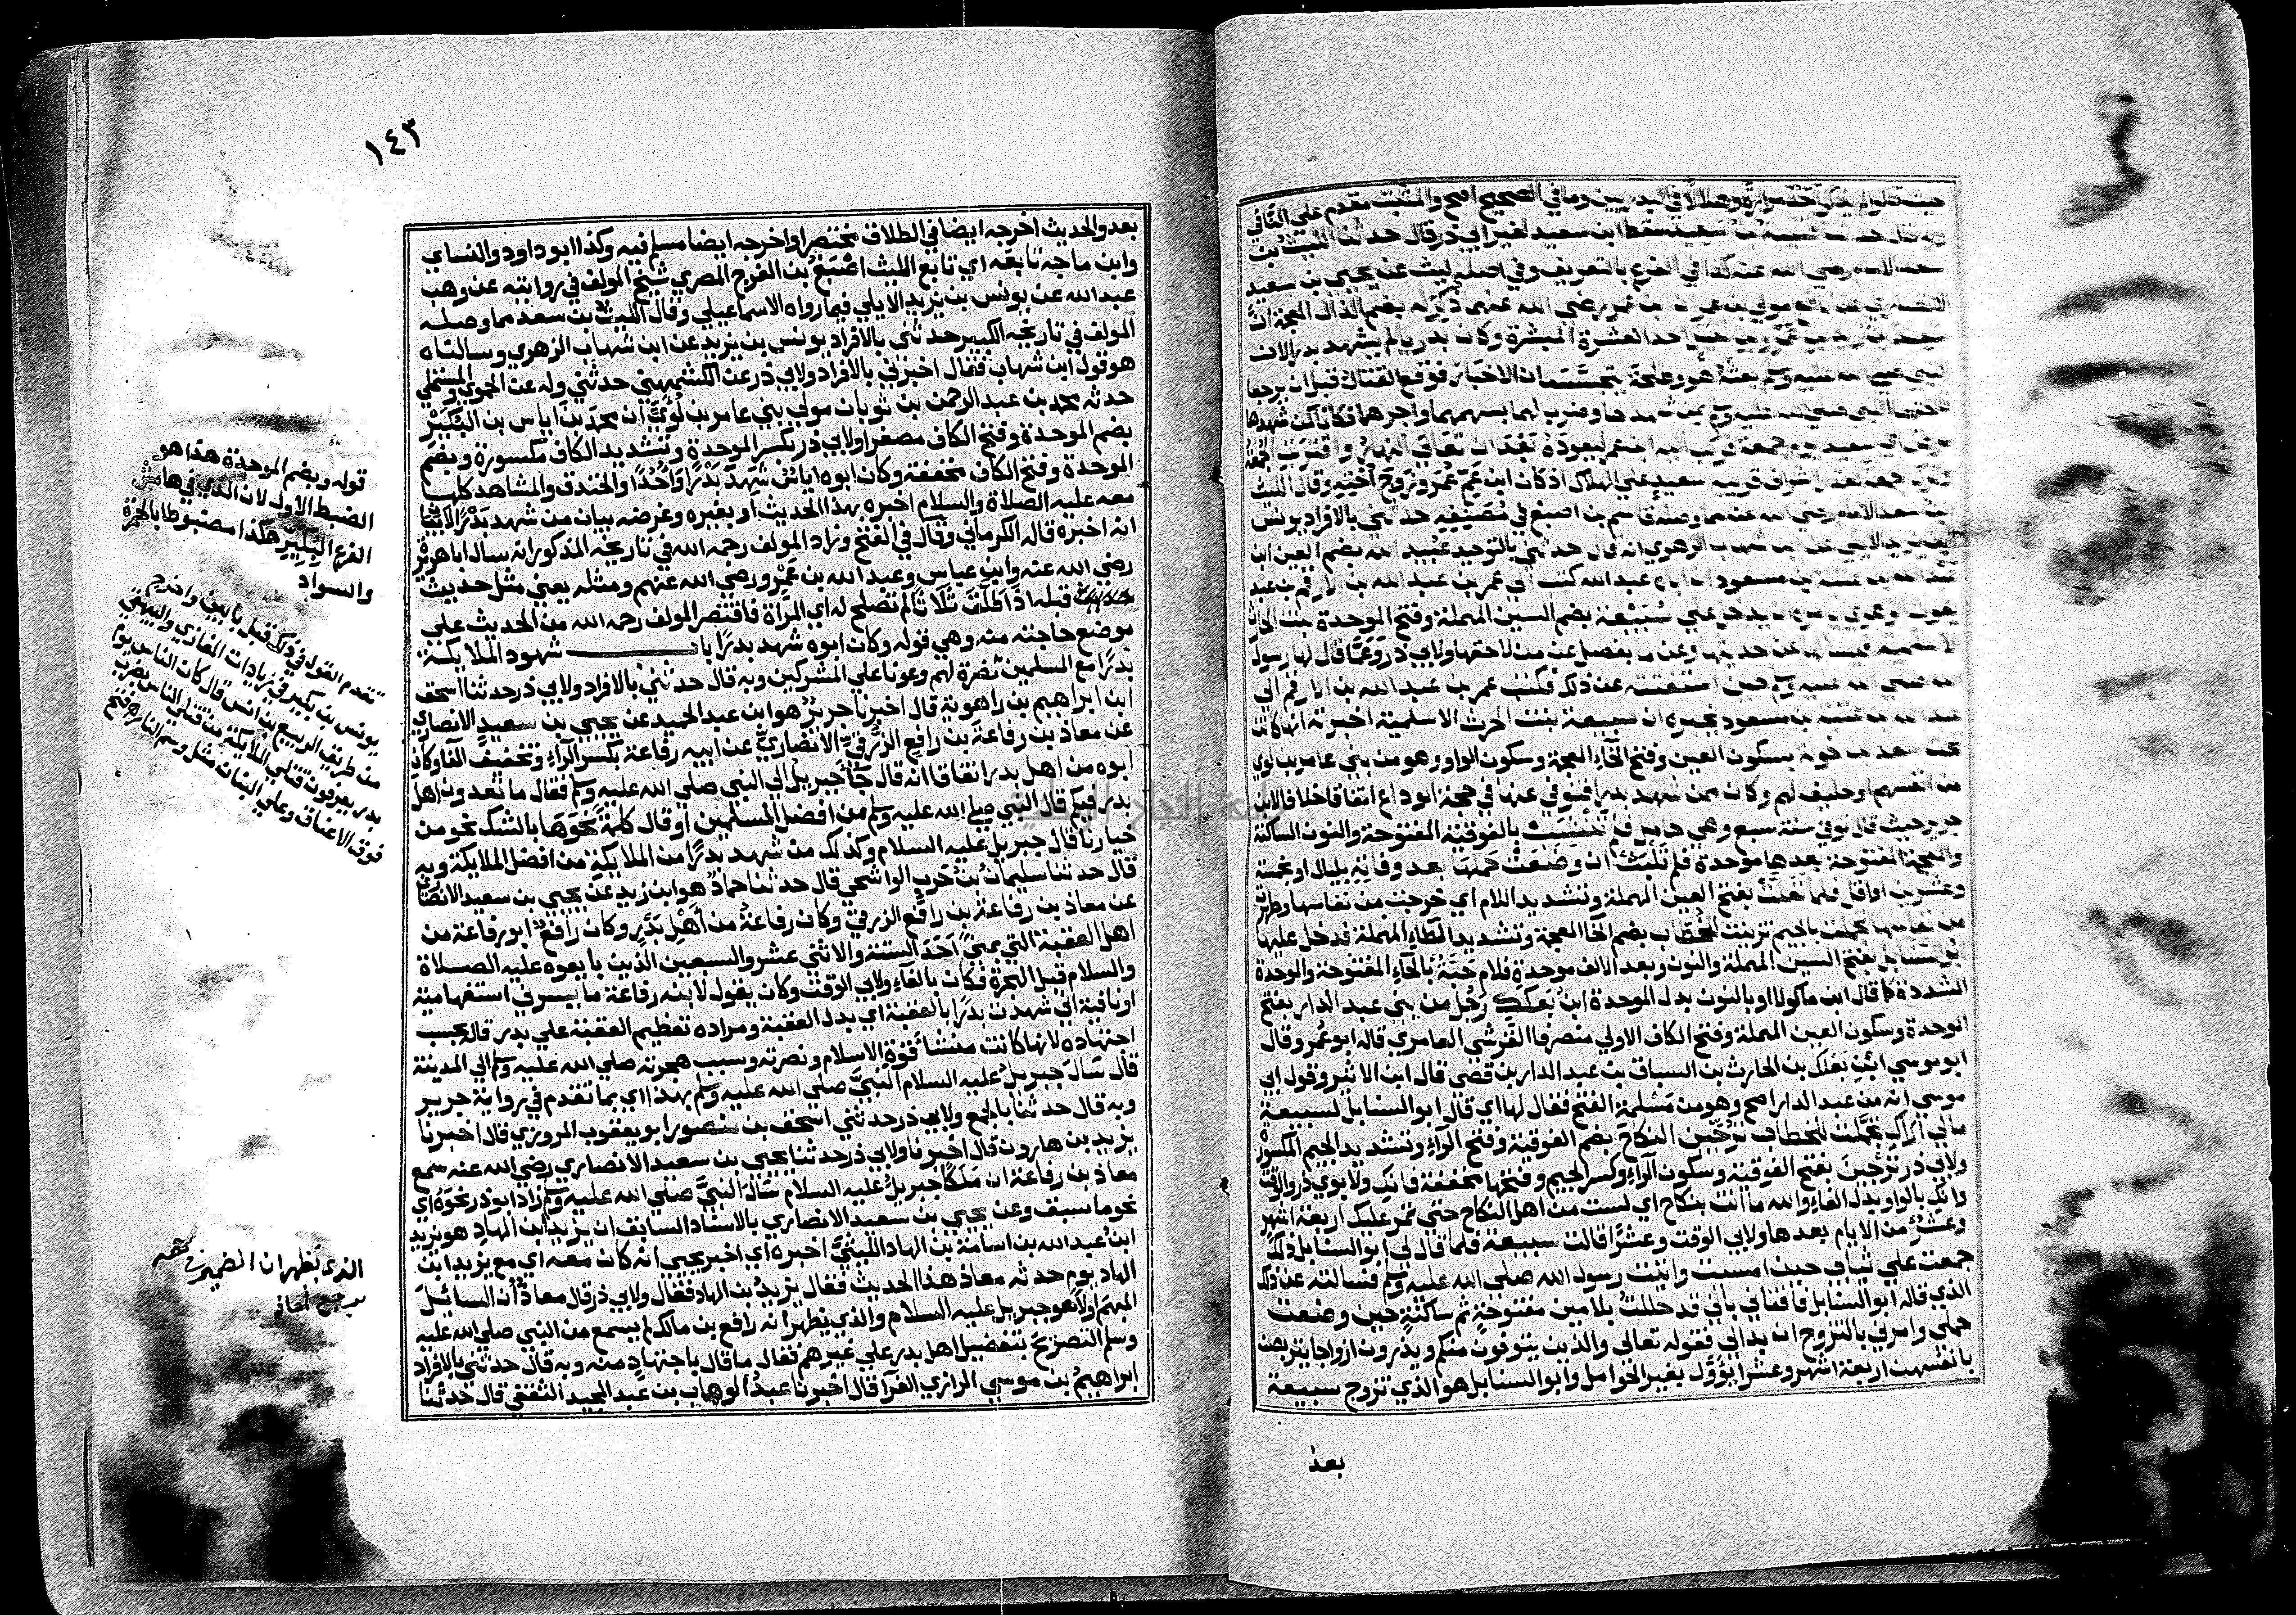 مقدم علي النافي
حدثنا الليث بن
سعد الامام رضي الله عنه كذا في الفرع بالتعريف وفي اصله ليث عن يحيي بن سعيد
رضي الله عنهما ذكر له بضم الذال المعجمة ان
احد العشرة المبشرة وكان بدريا ولم يشهد بدرا لان
النبي صلي الله عليه وسلم بعثه هو وطلحة يتجسسان الاخبار فوقع القتال قبل ان يرجعا
وضرب لهما بسهمهما واجرهما فكانا كمن شهدها
بعد ان تعالي النهار واقتربت الجمعة
سعيد علي الهلاك اذ كان ابن عم عمر وزوج اخته وقال الليث
ابن سعد الامام رضي الله عنه مما وصله قاسم بن اصبغ في مصنفه حدثني بالافراد يونس
الزهري انه قال حدثني بالتوحيد عبيد الله بضم العين ابن
عبد الله بن عتبة بن مسعود ان اباه عبد الله كتب الي عمر بن عبد الله بن الارقم بن عبد
يغوث الزهري يامره ان يدخل علي سبيعة بضم السين المهملة وفتح الموحدة بنت الحارث
الاسلمية فيسالها عن حديثها وعن ما بفصل عن من لاحقها ولابي ذر وعما قال لها رسول
الله صلي الله عليه وسلم حين استفتته عن ذلك فكتب عمر بن عبد الله بن الارقم الي
عبد الله بن عتبة بن مسعود يخبره ان سبيعة بنت الحرث الاسلمية اخبرته انها كانت
تحت سعد بن خولة بسكون العين وفتح الخاء المعجمة وسكون الواو وهو من بني عامر بن لوي
من انفسهم او حليف لهم وكان ممن شهد بدرا فتوفي عنها في حجة الوداع اتفاقا خلافا لابن
جرير حيث قال توفي سنة سبع وهي حامل فلم تنشب بالفوقية المفتوحة والنون الساكنة
والمعجمة المفتوحة بعدها موحدة فلم تلبث ان وضعت حملها بعد وفاته بليال او بخمسة
وعشرين او اقل فلما تعلت بفتح العين المهملة وتشديد اللام اي خرجت من نفاسها وطهرت
من نفاسها تجملت بالجيم تزينت للخطاب بضم الخا المعجمة وتشديد الطاء المهملة فدخل عليها
ابو السنابل بفتح السين المهملة والنون وبعد الالف موحدة فلام حبة بالحاء المفتوحة والموحدة
المشددة كما قال ابن ماكولا او بالنون بدل الموحدة ابن بعكك رجل من بني عبد الدار بفتح
الموحدة وسكون العين المهملة وفتح الكاف الاولي منصرفا القرشي العامري قاله ابو عمر وقال
ابو موسي ابن بعكك بن الحارث بن السباق بن عبد الدار بن قصي قال ابن الاثير وقول ابي
موسي انه من عبد الدار اصح وهو من مسلمة الفتح فقال لها اي قال ابو السنابل لسبيعة
ما لي اراك تجملت للخطاب ترجين النكاح بضم الفوقية وفتح الراء وتشديد الجيم المكسورة
ولابي ذر ترجين بفتح الفوقية وسكون الراء وكسر الجيم وفتحها مخففة فانك ولابوي ذر والوقت
وانك بالواو بدل الفاء والله ما انت بناكح اي لست من اهل النكاح حتي تمر عليك اربعة اشهر
وعشر من الايام بعدها ولابي الوقت وعشرا قالت سبيعة فلما قال لي ابو السنابل ذلك
جمعت علي ثيابي حين امسيت واتيت رسول الله صلي الله عليه وسلم فسالته عن ذلك
الذي قاله ابو السنابل فافتاني باني قد حللت بلامين مفتوحة ثم ساكنة حين وضعت
حملي وامرني بالتزوج ان بدا لي فقوله تعالي والذين يتوفون منكم ويذرون ازواجا يتربصن
بانفسهن اربعة اشهر وعشرا يؤول بغير الحوامل وابو السنابل هو الذي تزوج سبيعة
بعد
١٤٣
بعد والحديث اخرجه ايضا في الطلاق مختصرا واخرجه ايضا مسلم فيه وكذا ابو داود والنساي
وابن ماجه تابعه اي تابع الليث اصبغ بن الفرج المصري شيخ المولف في روايته عن وهب
عبد الله عن يونس بن يزيد الايلي فيما رواه الاسماعيلي وقال الليث بن سعد مما وصله
المولف في تاريخه الكبير حدثني بالافراد يونس بن يزيد عن ابن شهاب الزهري وسالناه
هو قول ابن شهاب فقال اخبرني بالافراد ولابي ذر عن الكشميهني حدثني وله عن الحموي والمستملي
حدثه محمد بن عبد الرحمن بن ثوبان مولي بني عامر بن لؤي ان محمد بن اياس بن البكير
بضم الموحدة وفتح الكاف مصغرا ولابي ذر بكسر الموحدة وتشديد الكاف مكسورة وبضم
الموحدة وفتح الكاف مخففة وكان ابوه اياس شهد بدرا واحدا والخندق والمشاهد كلها
معه عليه الصلاة والسلام اخبره بهذا الحديث او بغيره وغرضه بيان من شهد بدرا لا بيان
انه اخبره قاله الكرماني وقال في الفتح وزاد المولف رحمه الله في تاريخه المذكور انه سال ابا هريرة
رضي الله عنه وابن عباس وعبد الله بن عمرو رضي الله عنهم ومثله يعني مثل حديث
قبله اذا طلق ثلاثا لم تصلح له اي المراة فاقتصر المولف رحمه الله من الحديث علي
موضع حاجته منه وهي قوله وكان ابوه شهد بدرا باب شهود الملايكة
بدرا مع المسلمين نصرة لهم وعونا علي المشركين وبه قال حدثني بالافراد ولابي ذر حدثنا اسحق
ابن ابراهيم بن راهوية قال اخبرنا جرير هو ابن عبد الحميد عن يحيي بن سعيد الانصاري
عن معاذ بن رفاعة بن رافع الزرقي الانصاري عن ابيه رفاعة بكسر الراء وتخفيف الفا وكان
ابوه من اهل بدر اتفاقا انه قال جا جبريل الي النبي صلي الله عليه وسلم فقال ما تعدون اهل
بدر فيكم قال النبي صلي الله عليه وسلم من افضل المسلمين او قال كلمة نحوها بالشك نحو من
خيارنا قال جبريل عليه السلام وكذلك من شهد بدرا من الملايكة من افضل الملايكة وبه
قال حدثنا سليمان بن حرب الواشحي قال حدثنا حماد هو ابن زيد عن يحيي بن سعيد الانصاري
عن معاذ بن رفاعة بن رافع الزرقي وكان رفاعة من اهل بدر وكان رافع ابو رفاعة من
اهل العقبة التي بمني احد الستة والاثني عشر والسبعين الذين بايعوه عليه الصلاة
والسلام قبل الهجرة فكان بالفاء ولابي الوقت وكان يقول لابنه رفاعة ما يسرني استفهامية
او نافية اني شهدت بدرا بالعقبة اي بدل العقبة ومراده تعظيم العقبة علي بدر قاله بحسب
اجتهاده لانها كانت منشأ قوة الاسلام ونصرته وسبب هجرته صلي الله عليه وسلم الي المدينة
قال سال جبريل عليه السلام النبي صلي الله عليه وسلم بهذا اي بما تقدم في رواية جرير
وبه قال حدثنا بالجمع ولابي ذر حدثني اسحق بن منصور ابو يعقوب المروزي قال اخبرنا
يزيد بن هارون قال اخبرنا ولابي ذر حدثنا يحيي بن سعيد الانصاري رضي الله عنه سمع
معاذ بن رفاعة ان ملكا جبريل عليه السلام سال النبي صلي الله عليه وسلم زاد ابو ذر نحوه اي
نحو ما سبق وعن يحيي بن سعيد الانصاري بالاسناد السابق ان يزيد ابن الهاد هو يزيد
ابن عبد الله بن اسامة بن الهاد الليثي اخبره اي اخبر يحيي انه كان معه اي مع يزيد ابن
الهاد يوم حدثه معاذ هذا الحديث فقال يزيد بن الهاد فقال ولابي ذر قال معاذ ان السائل
المبهم اولا هو جبريل عليه السلام والذي يظهر انه رافع بن مالك لم يسمع من النبي صلي الله عليه
وسلم التصريح بتفضيل اهل بدر علي غيرهم فقال ما قال باجتهاد منه وبه قال حدثني بالافراد
ابراهيم بن موسي الرازي الفرا قال اخبرنا عبد الوهاب بن عبد المجيد الثقفي قال حدثنا
قوله وبضم الموحدة هذا هو
الضبط الاول لان الذي في هامش
الفرع البكير هكذا مضبوطا بالحمرة
والسواد
تقدم القول في ذلك قبل بابين واخرج
يونس بن بكير في زيادات المغازي والبيهقي
من طريق الربيع بن انس قال كان الناس يوم
بدر يعرفون قتلي الملايكة من قتلي الناس بضرب
فوق الاعناق وعلي البنان مثل وسم النار اه فتح
الذي يظهر ان الضمير في معه
يرجع لمعاذ